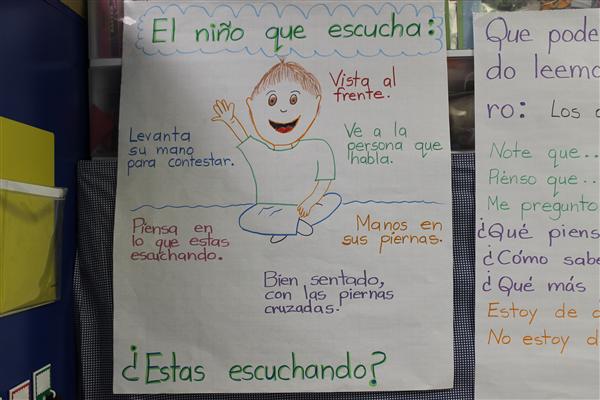 El niño que escucha:
Vista al
frente.
Levanta
su mano
para contestar.
Ve a la
persona que
habla.
Piensa en
lo que estas
esuchando.
Manos en
sus piernas.
Bien sentado,
con las piernas
cruzadas.
¿Estas escuchando?
Que pode
do leemo
ro: Los
Note que..
Piénso que..
Me pregunto
¿Qué piens
¿Cómo sabe
¿Qué más
Estoy de
No estoy d